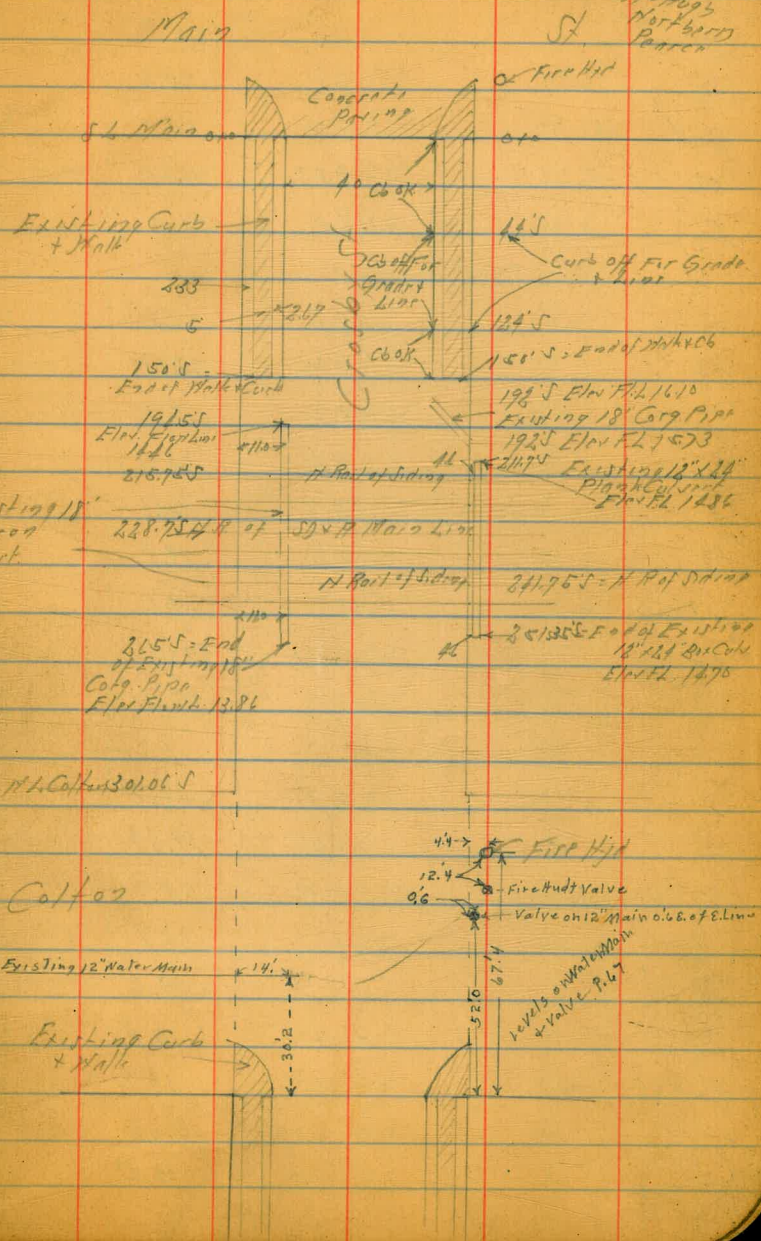 Main
St.
Northern
Fire Hyd
Concrete
Paving
S L Main 0+0
0+0
40
Cb OK
Existing Curb
+ Walk
44'S
Cb off For
Grade +
Line
Curb off For Grade
+ Line
Crosby St
233
5
2.67
124'S
Cb OK
150'S = End of Walk + Cb
150'S =
End of Walk + Curb
192'S Elev FL 16.10
Existing 18" Corg Pipe
192'S Elev FL 15.73
Elev. Flow Line
14.46
211.7'S
Existing 12" x 24"
Plank Culvert
Elev FL 14.86
215.75'S
N Rail of Siding
sting 18"
228.7'S N R of SD & A Main Line
N Rail of Siding
241.75'S = N R of Siding
265'S = End
of Existing 18"
Corg. Pipe
Elev Flow L. 13.86
251.35'S = End of Existing
12" x 24" Box Culv
Elev FL. 14.70
N L Colton 301.06'S
4.4
Fire Hyd
12.4
Fire Hydt Valve
Colton
0.6
Valve on 12" Main 0.6 E. of E. Line
Existing 12" Water Main
14'
67.4
52.0
Levels on Water Main
+ Valve P.67
30.2
Existing Curb
+ Walk